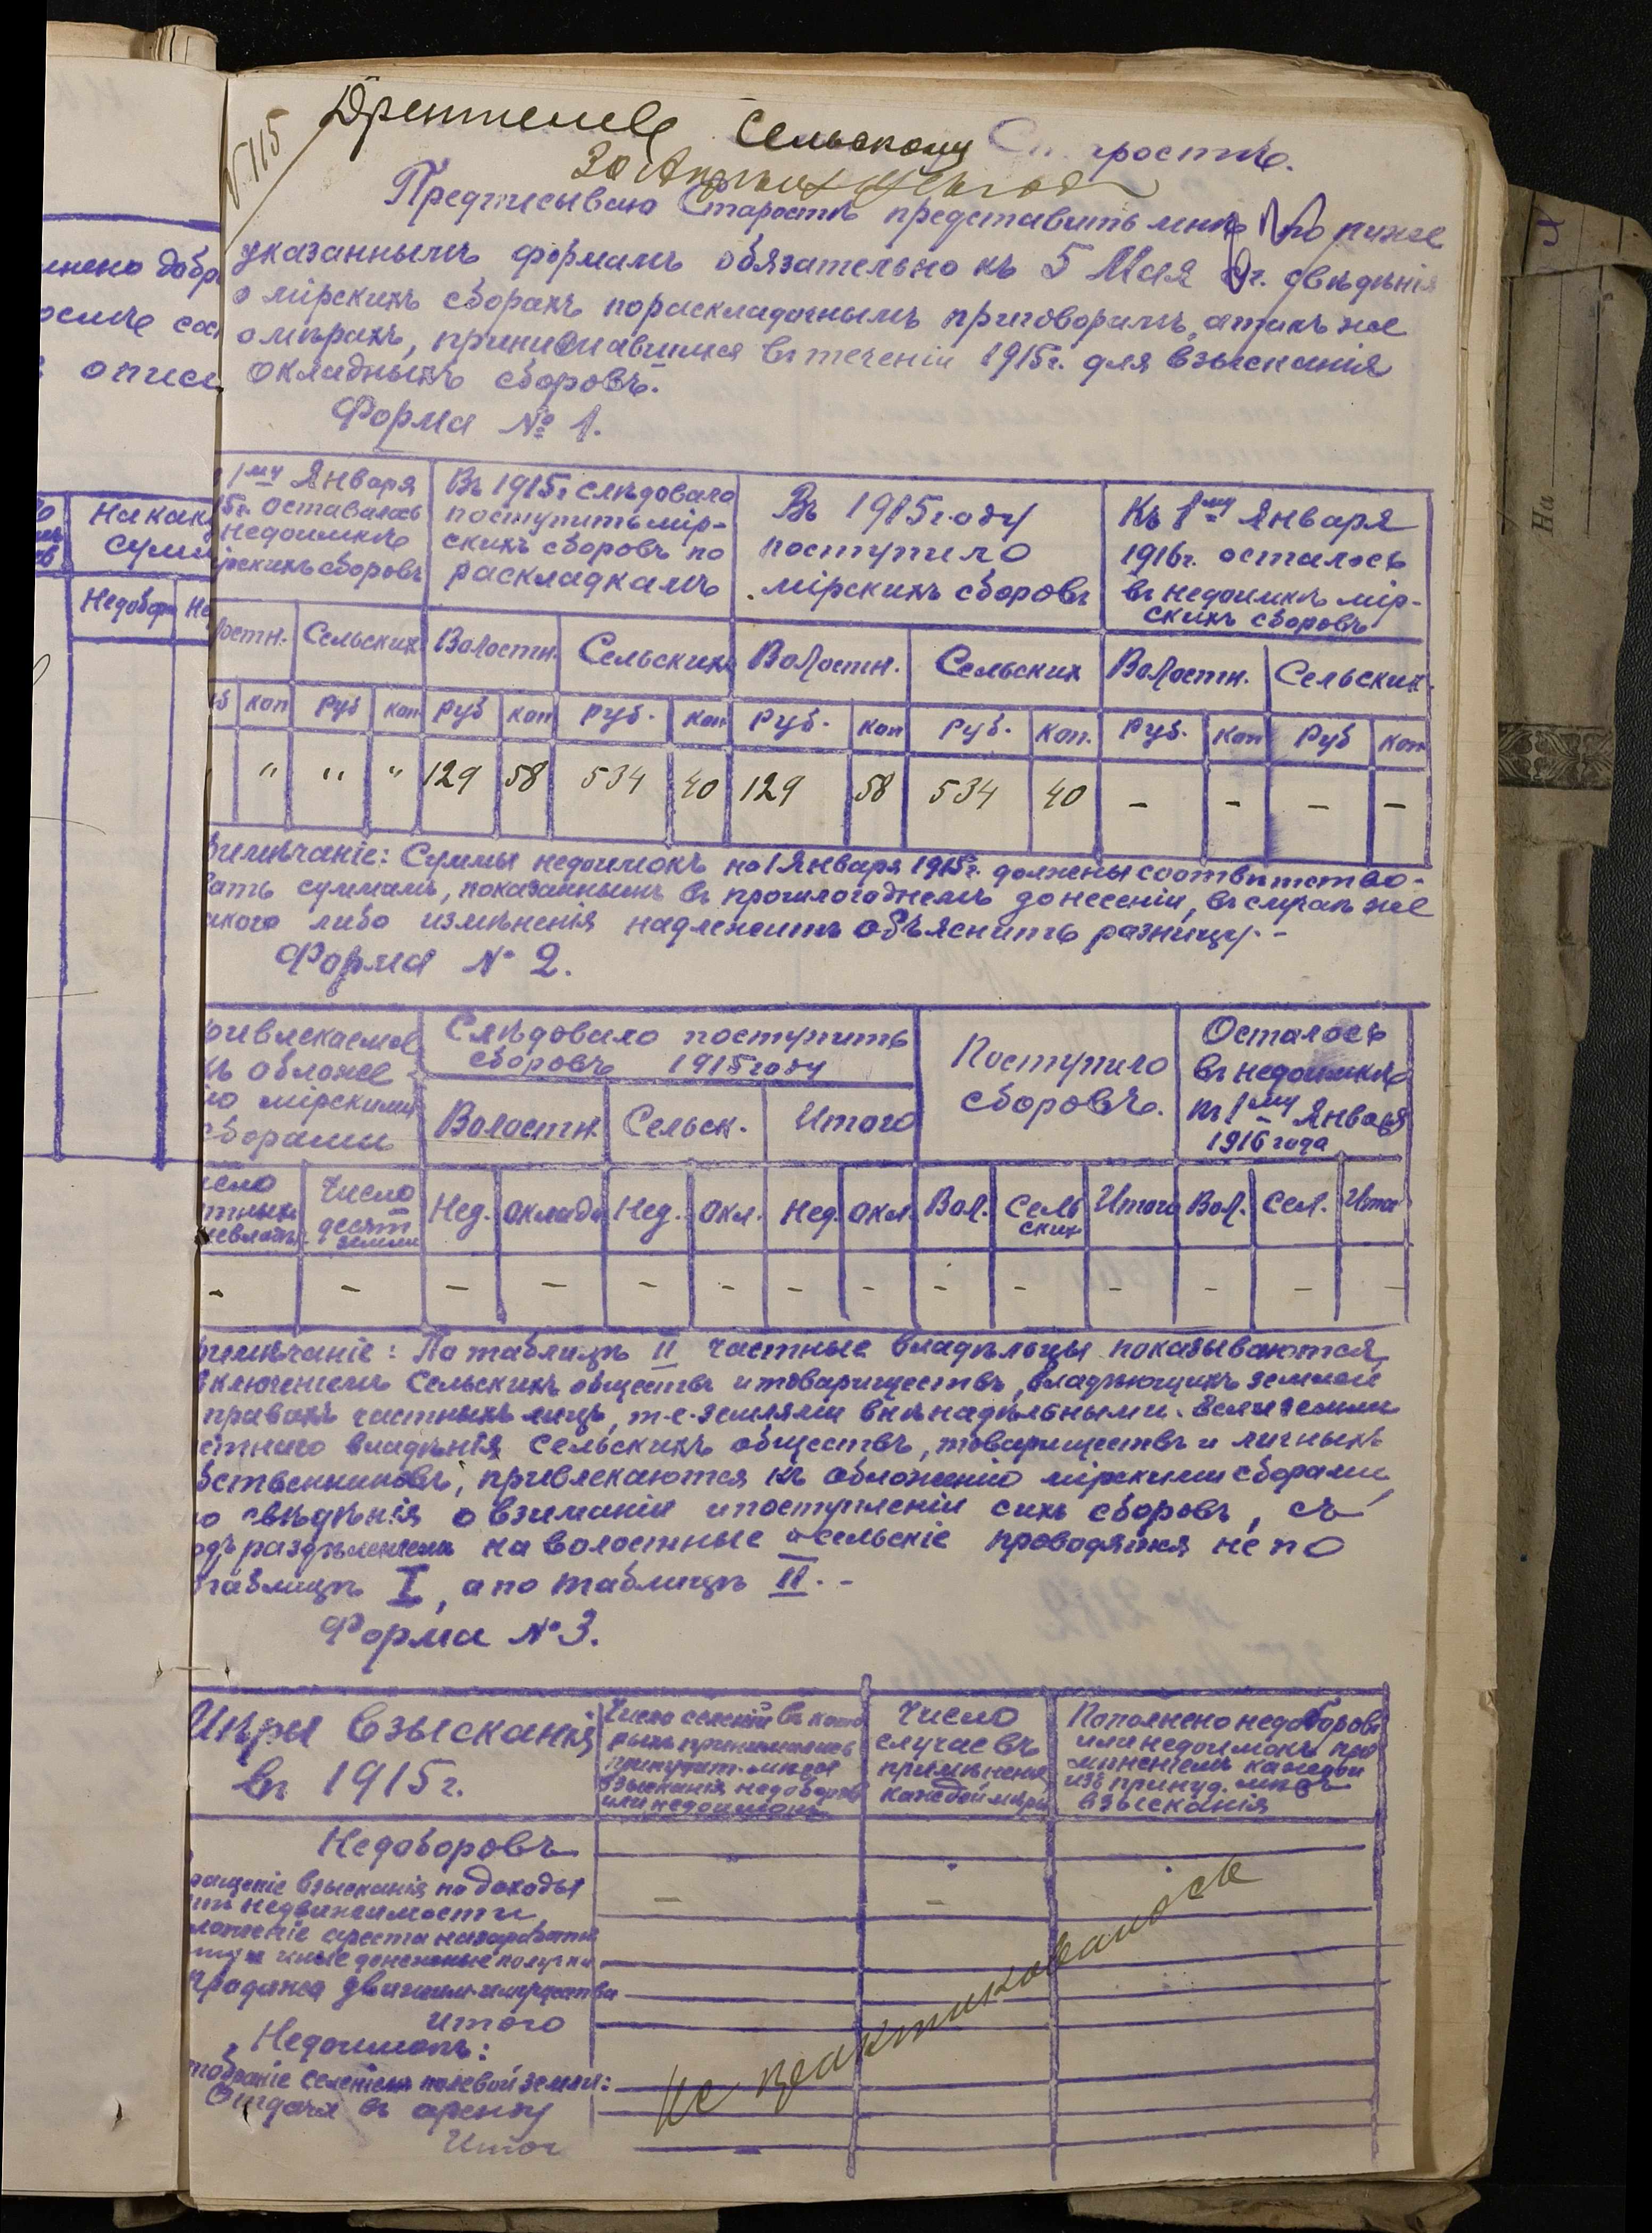 № 115
Сельскому Старостѣ.
Предписываю Старостѣ представить мнѣ по ниже
указаннымъ формамъ обязательно къ 5 Мая с/г. свѣдѣнія
о мірскихъ сборахъ по раскладочнымъ приговорамъ, а такъ же
о мѣрахъ, принимавшихся въ теченіи 1915 г. для взысканія
окладныхъ сборовъ.
Форма № 1.
1му Января
15 г. оставалось
недоимкѣ
ірскихъ сборовъ
Въ 1915 г слѣдовало
поступить мір-
скихъ сборовъ по
раскладкамъ
Въ 1915 году
поступило
мірскихъ сборовъ
Къ 1му Января
1916 г. осталось
въ недоимкѣ мір-
скихъ сборовъ
лостн. Сельскихъ Волостн. Сельскихъ Волостн. Сельских Волостн. Сельских
б коп руб коп руб коп руб. коп руб. коп руб. коп. руб. коп руб коп
" " " 129 58 534 40 129 58 534 40 - - - -
римѣчаніе: Суммы недоимокъ на 1 Января 1915 г. должны соотвѣтство-
вать суммамъ, показаннымъ въ прошлогоднемъ донесеніи, въ случаѣ же
акого либо измѣненія надлежитъ объяснить разницу. -
Форма № 2.
ривлекаемое
къ обложе-
ію мірскими
сборами
Слѣдовало поступить
сборовъ 1915 году
Волостн. Сельск. Итого
Поступило
сборовъ.
Осталось
въ недоимкѣ
къ 1му Января
1916 года
исло
Число
десят
земли
Нед. оклада Нед. окл. Нед. окл. Вол. Сель
ских Итого Вол. Сел. Итог
- - - - - - - - - - - - - -
римѣчаніе: По таблицѣ II частные владѣльцы показываются
включеніемъ Сельскихъ обществъ и товариществъ, владѣющихъ землей
правахъ частныхъ лицъ, т.е. землями внѣнадѣльными. Если земли
стнаго владѣнія Сельскихъ обществъ, товариществъ и личныхъ
бственниковъ, привлекаются къ обложенію мірскими сборами,
о свѣдѣнія о взиманіи и поступленіи сихъ сборовъ, съ
одъ раздѣленіемъ на волостные и сельскіе проводятся не по
таблицѣ I, а по таблицѣ II. -
Форма № 3.
Мѣры взысканія
въ 1915 г.
Число селеній въ кото
рыхъ принимались
принудит. мѣры
взысканія недоборовъ
или недоимокъ
Число
случаевъ
примѣненія
каждой мѣры
Пополнено недоборовъ
или недоимокъ при
мѣненіемъ каждой
изъ принуд. мѣръ
взысканія
Недоборовъ
ращеніе взысканія на доходы
недвижимости
ложеніе ареста на заработн
иные денежные получки
продажа движим. имущества
Итого
Недоимокъ:
тобраніе селеніемъ полевой земли:
Отдача въ аренду
Итог
не практиковалось